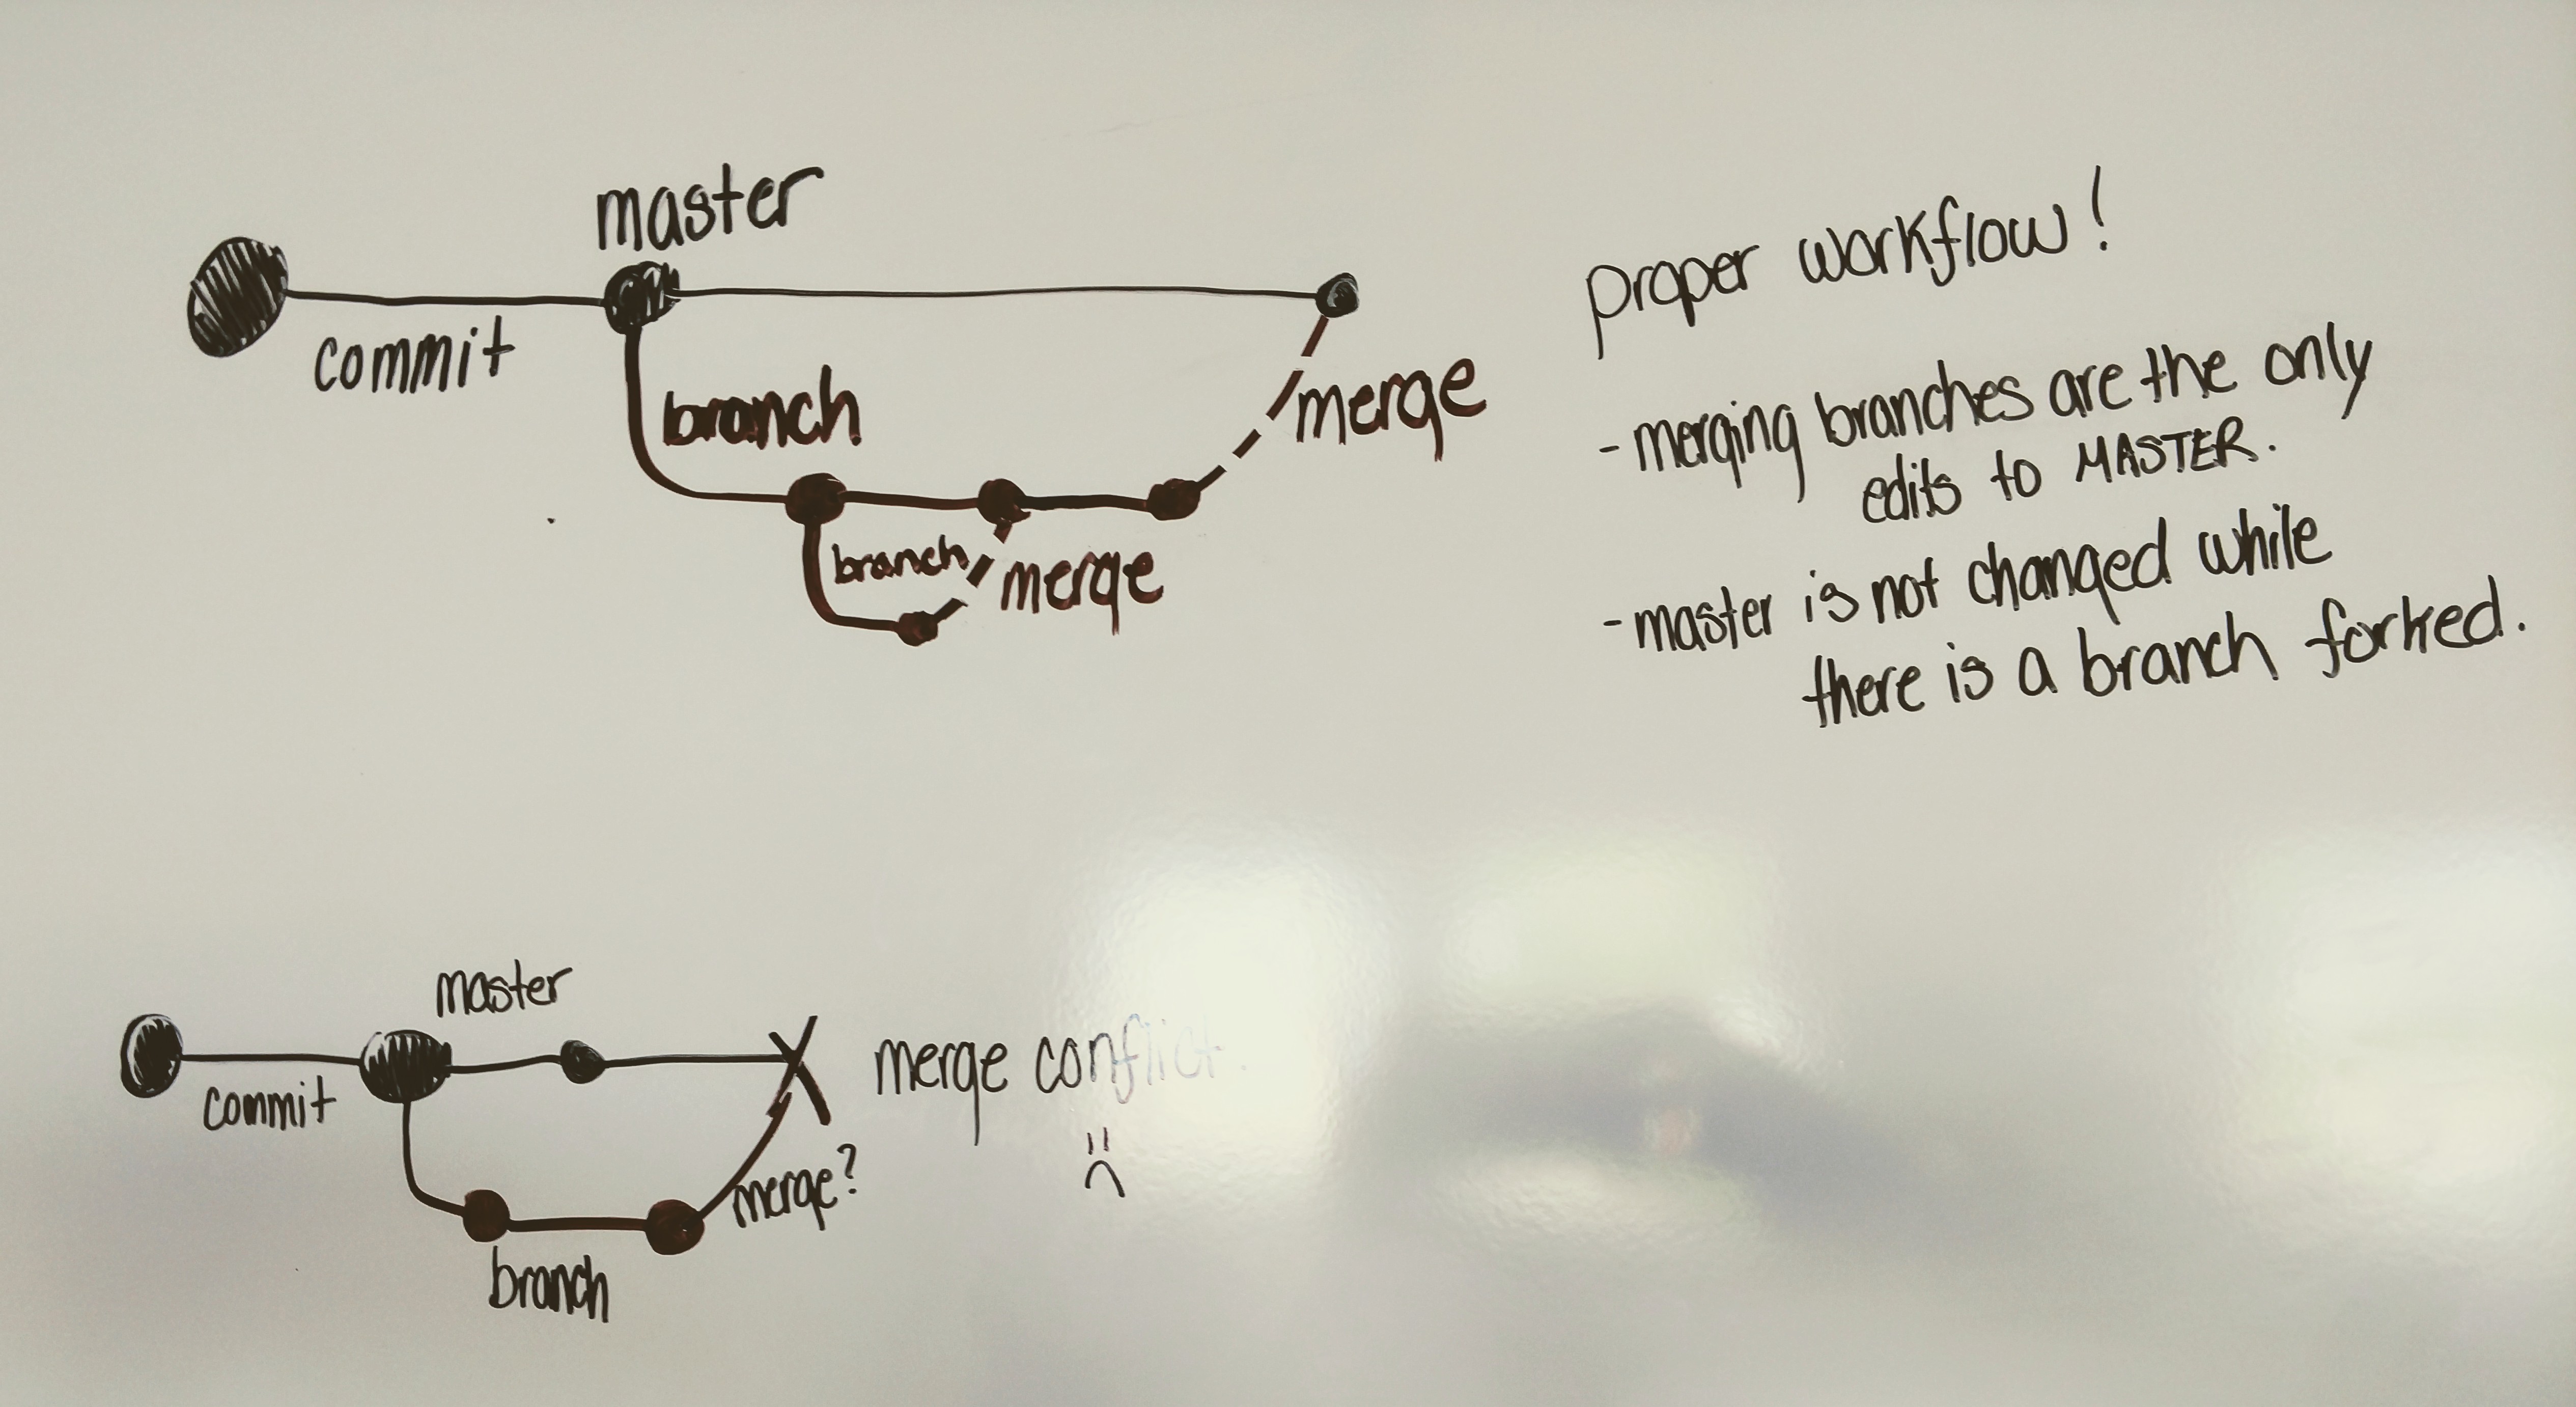 master
commit
branch
merge
branch
merge
proper workflow!
- merging branches are the only
edits to MASTER.
- master is not changed while
there is a branch forked.
master
commit
merge conflict.
merge?
branch